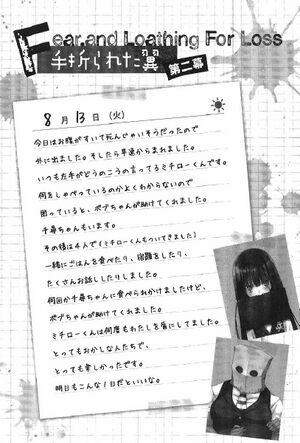 Fear,and Loathing For Loss
手折られた翼 第二幕
8月13日(火)
今日はお腹がすいて死んじゃいそうだったので
外に出ました。そしたら早速からまれました。
いつも左手がどうのこうの言ってるミチローくんです。
何をしゃべっているのかよくわからないので
困っていると、ボデちゃんが助けてくれました。
千尋ちゃんもいます。
その後は4人で(ミチローくんもついてきました)
一緒にごはんを食べたり、宿題をしたり、
たくさんお話ししたりしました。
何回か千尋ちゃんに食べられかけましたけど、
ボデちゃんが助けてくれました。
ミチローくんは何度もわたしを盾にしてました。
とってもおかしな人たちで、
とっても楽しかったです。
明日もこんな1日だといいな。